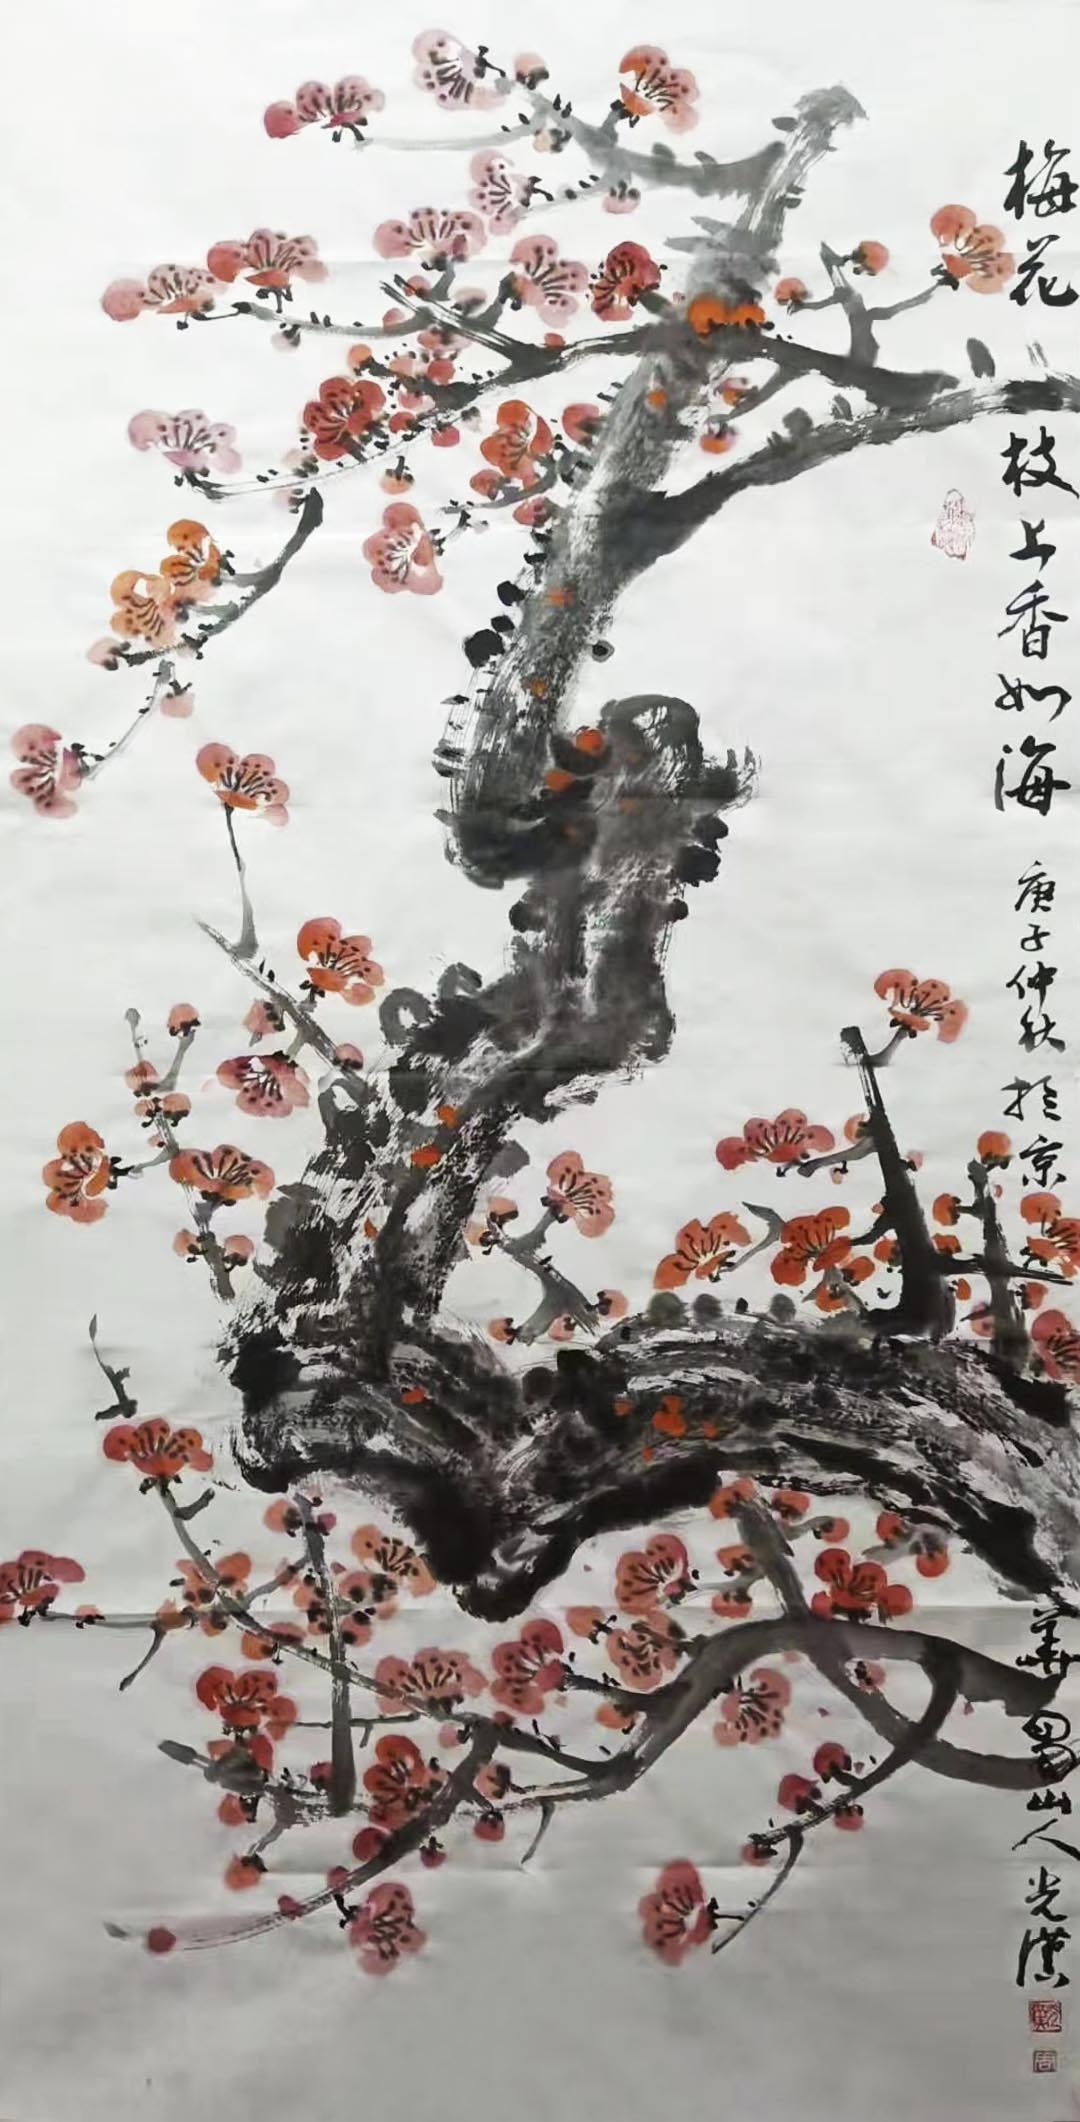 梅花枝上香如海庚子仲秋於京華蜀山人光漢